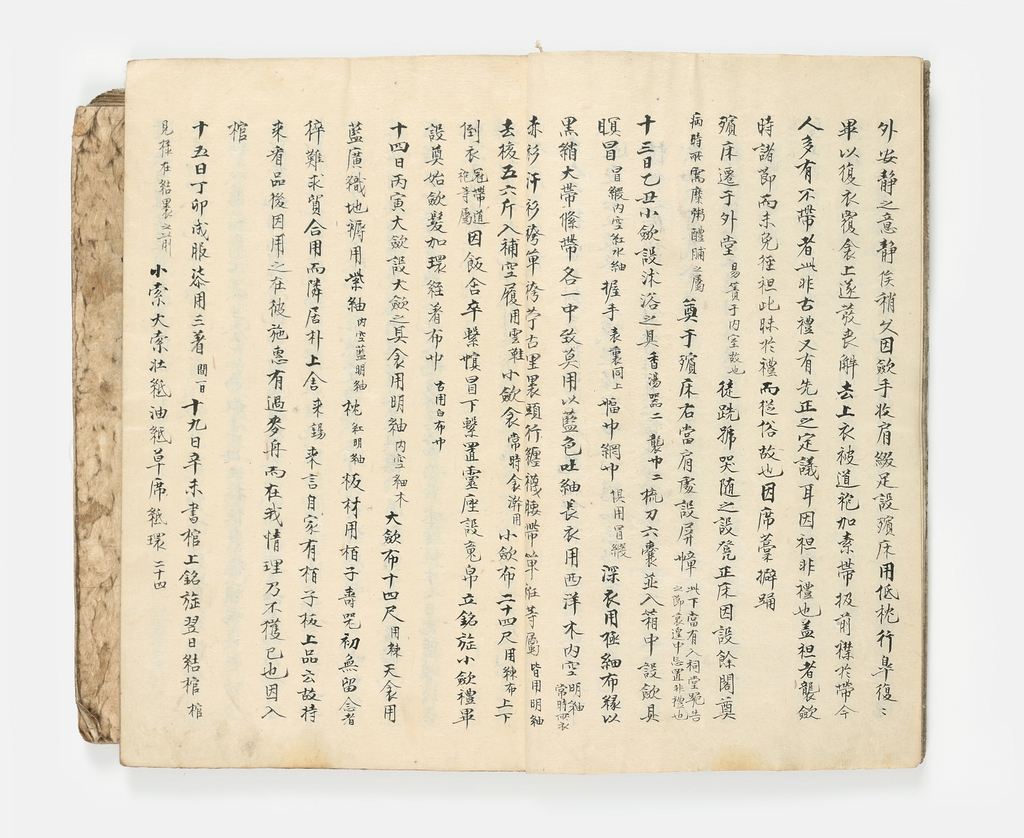 外安静之意静俟稍久因歛手收肩綴足設殯床用低枕行皐復〻
畢以復衣覆衾上遂發喪解去上衣被道袍加素帶扱前襟於帶今
人多有不帶者此非古禮又有先正之定議耳因袒非禮也盖袒者襲歛
時諸節而未免徑袒此昧於禮而從俗故也因席藁擗踊
殯床遷于外堂易簀于内室故也 徒跣號哭随之設凳正床因設餘閣奠
病時所需糜粥醴脯之属 奠于殯床右當肩處設屏幛此下當有入祠堂
十三日乙丑小歛設沐浴之具香湯器二 襲巾二 梳刀六囊並入箱中 設歛具
瞑冒冒緞内空紅水紬 握手表裏同上 幅巾網巾俱用冒緞 深衣用極細布縁以
黒綃大帶絛帶各一中致莫用以藍色吐紬長衣用西洋木内空明紬常時所衣
赤衫汗衫袴單袴 古里裹頭行纏襪腰帶單 等屬皆用明紬
去核五六斤入補空履用雲鞋小歛衾常時衾澣用 小歛布二十四尺用練布上下
倒衣冠帶道袍等屬 因飯含卒繫慎冒下繫置靈座設䰟帛立銘旌小歛禮畢
設奠始歛髮加環絰着布巾古用白布巾
十四日丙寅大歛設大歛之具衾用明紬内空細木 大歛布十四尺用練 天衾用
藍廣織地褥用紫紬内空藍明紬 枕紅明紬 板材用栢子壽器初無留念者
猝難求貿合用而隣居朴上舍来錫来言自家有栢子板上品云故持
来看品後因用之在彼施惠有過麥舟而在我情理乃不獲已也因入
棺
十五日丁卯成服漆用三著間一日 十九日辛未書棺上銘旌翌日結棺棺
見樣在結裹之前 小索大索壮紙油紙草席紙環二十四